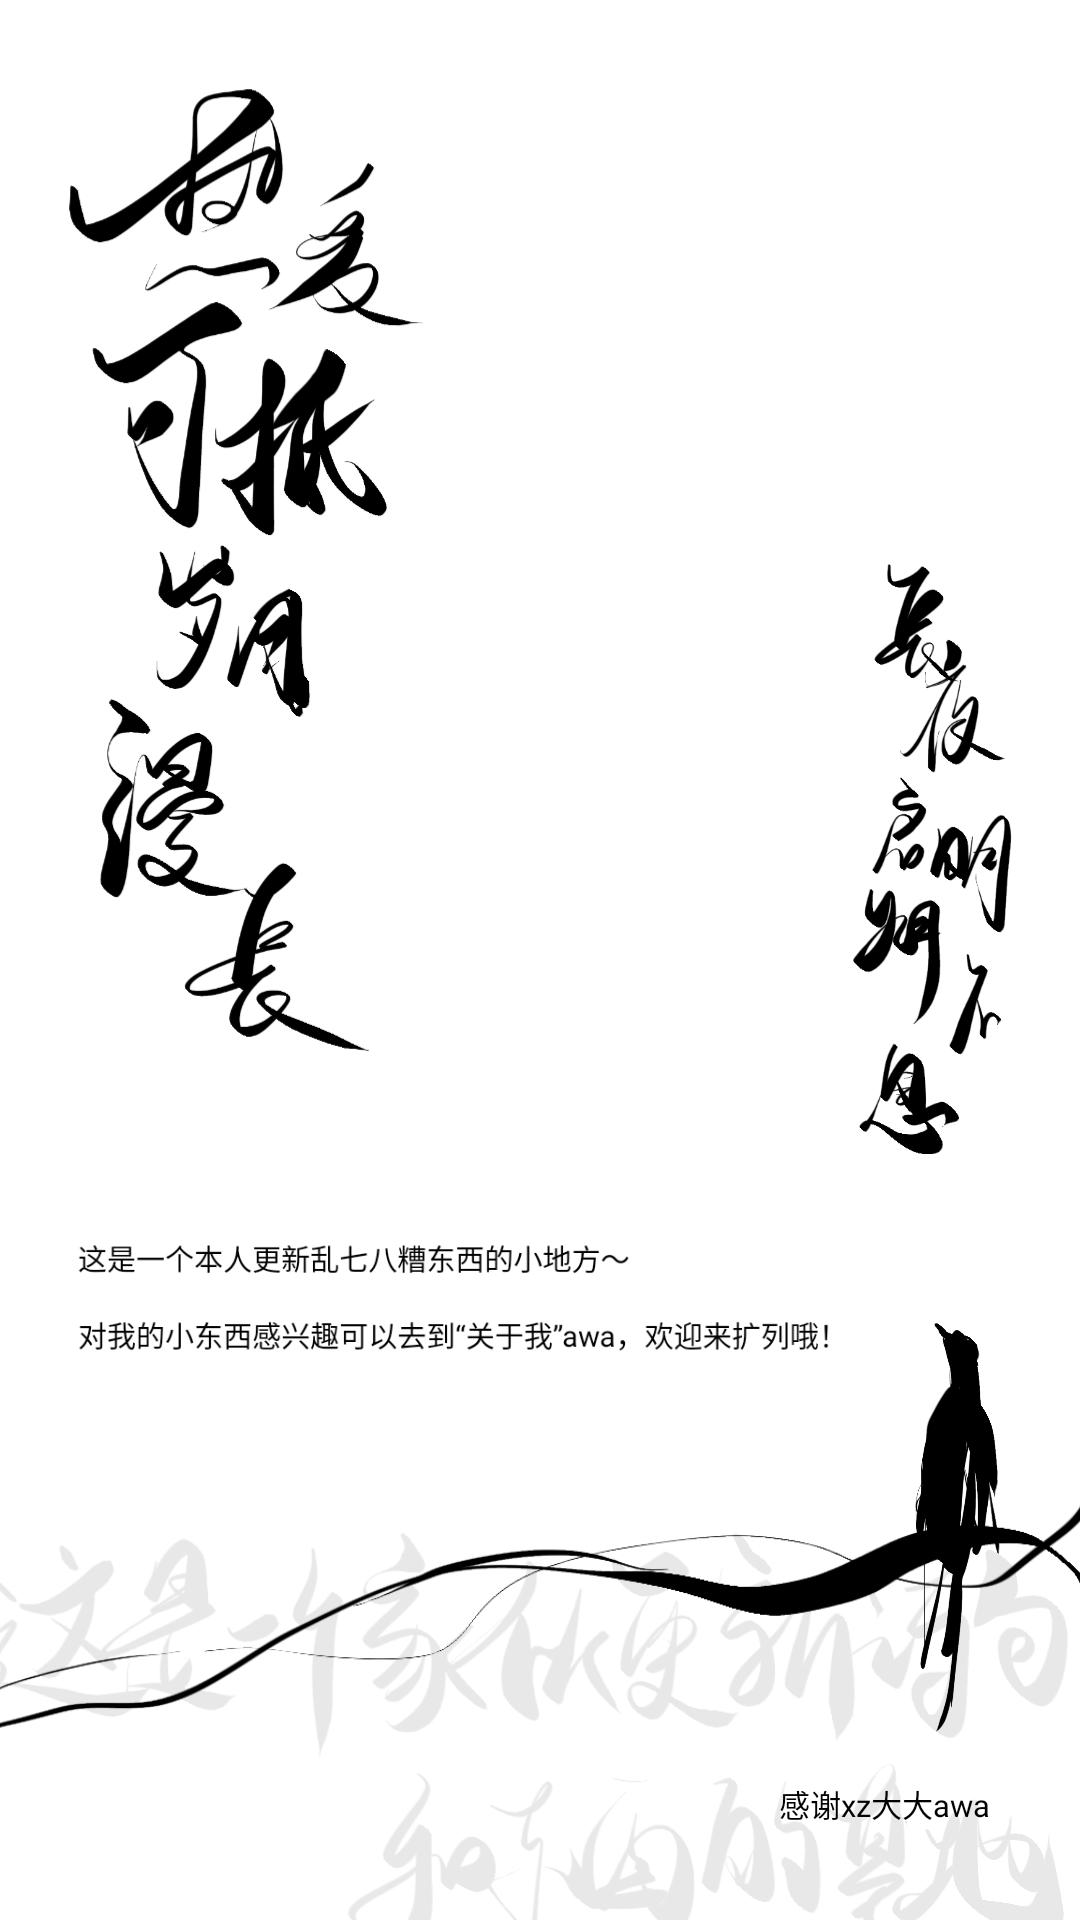 热爱
可抵
岁月
漫
长
长夜
启明
朔不
恩
这是一个本人更新乱七八糟东西的小地方～
对我的小东西感兴趣可以去到“关于我”awa，欢迎来扩列哦！
这是一个家伙更新谱
和
感谢xz大大awa